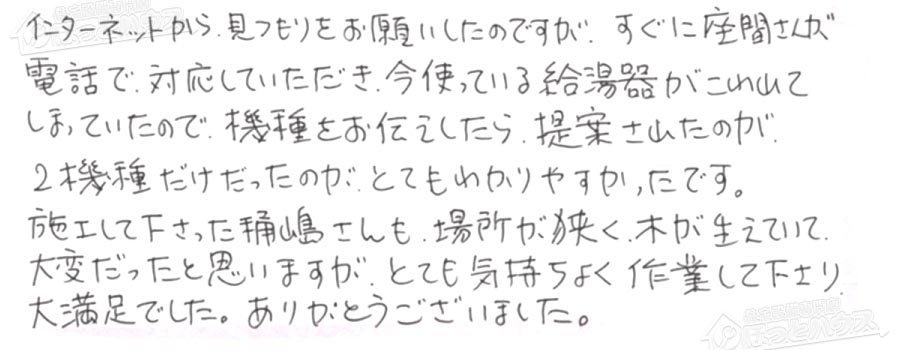 インターネットから、見つもりをお願いしたのですが、すぐに座間さんが
電話で、対応していただき、今使っている給湯器がこわれて
しまっていたので、機種をお伝えしたら、提案されたのが、
2機種だけだったのが、とてもわかりやすかったです。
施工して下さった桶嶋さんも、場所が狭く、木が生えていて、
大変だったと思いますが、とても気持ちよく作業して下さり、
大満足でした。ありがとうございました。
ほっとハウス